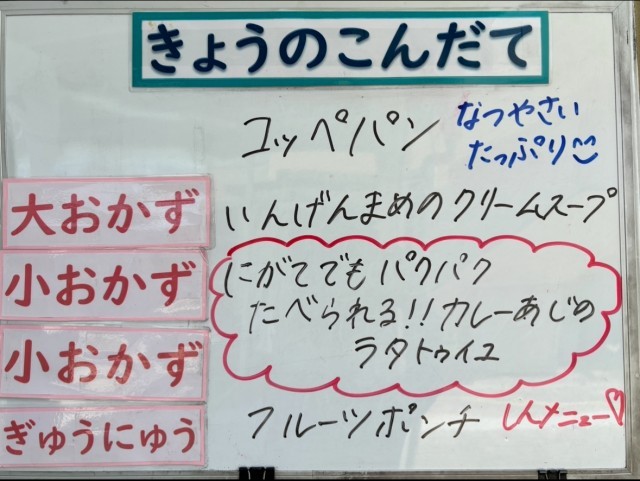 きょうのこんだて
コッペパン
なつやさい
たっぷり
大おかず
いんげんまめのクリームスープ
小おかず
にがてでもパクパク
たべられる!!カレーあじの
ラタトゥイユ
小おかず
フルーツポンチ
ぎゅうにゅう